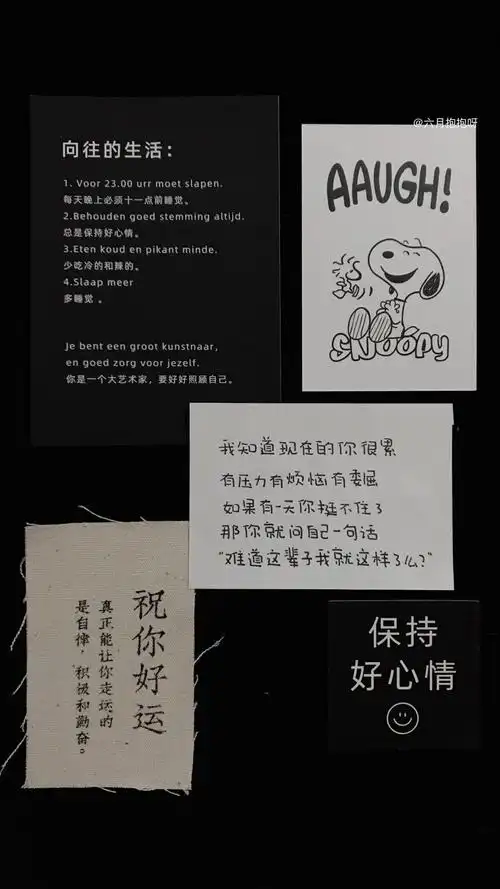 @六月抱抱呀
向往的生活：
1. Voor 23.00 urr moet slapen.
每天晚上必须十一点前睡觉。
2.Behouden goed stemming altijd.
总是保持好心情。
3.Eten koud en pikant minde.
少吃冷的和辣的。
4.Slaap meer
多睡觉 。
Je bent een groot kunstnaar,
en goed zorg voor jezelf.
你是一个大艺术家，要好好照顾自己。
AAUGH!
SNOOPY
我知道现在的你很累
有压力有烦恼有委屈
如果有一天你挺不住了
那你就问自己一句话
“难道这辈子我就这样了么?”
祝你好运
真正能让你走运的
是自律，积极和勤奋。
保持
好心情